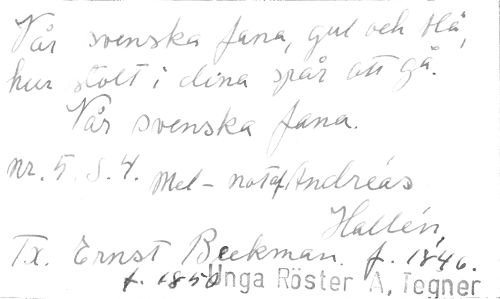 Vår svenska fana, gul och blå,
hur stolt i dina spår att gå.
Vår svenska fana.
nr. 5. S. 4. Mel- not af Andreás
Hallén,
f. 1846.
Tx. Ernst Beckman.
f. 1850 Unga Röster A, Tegner